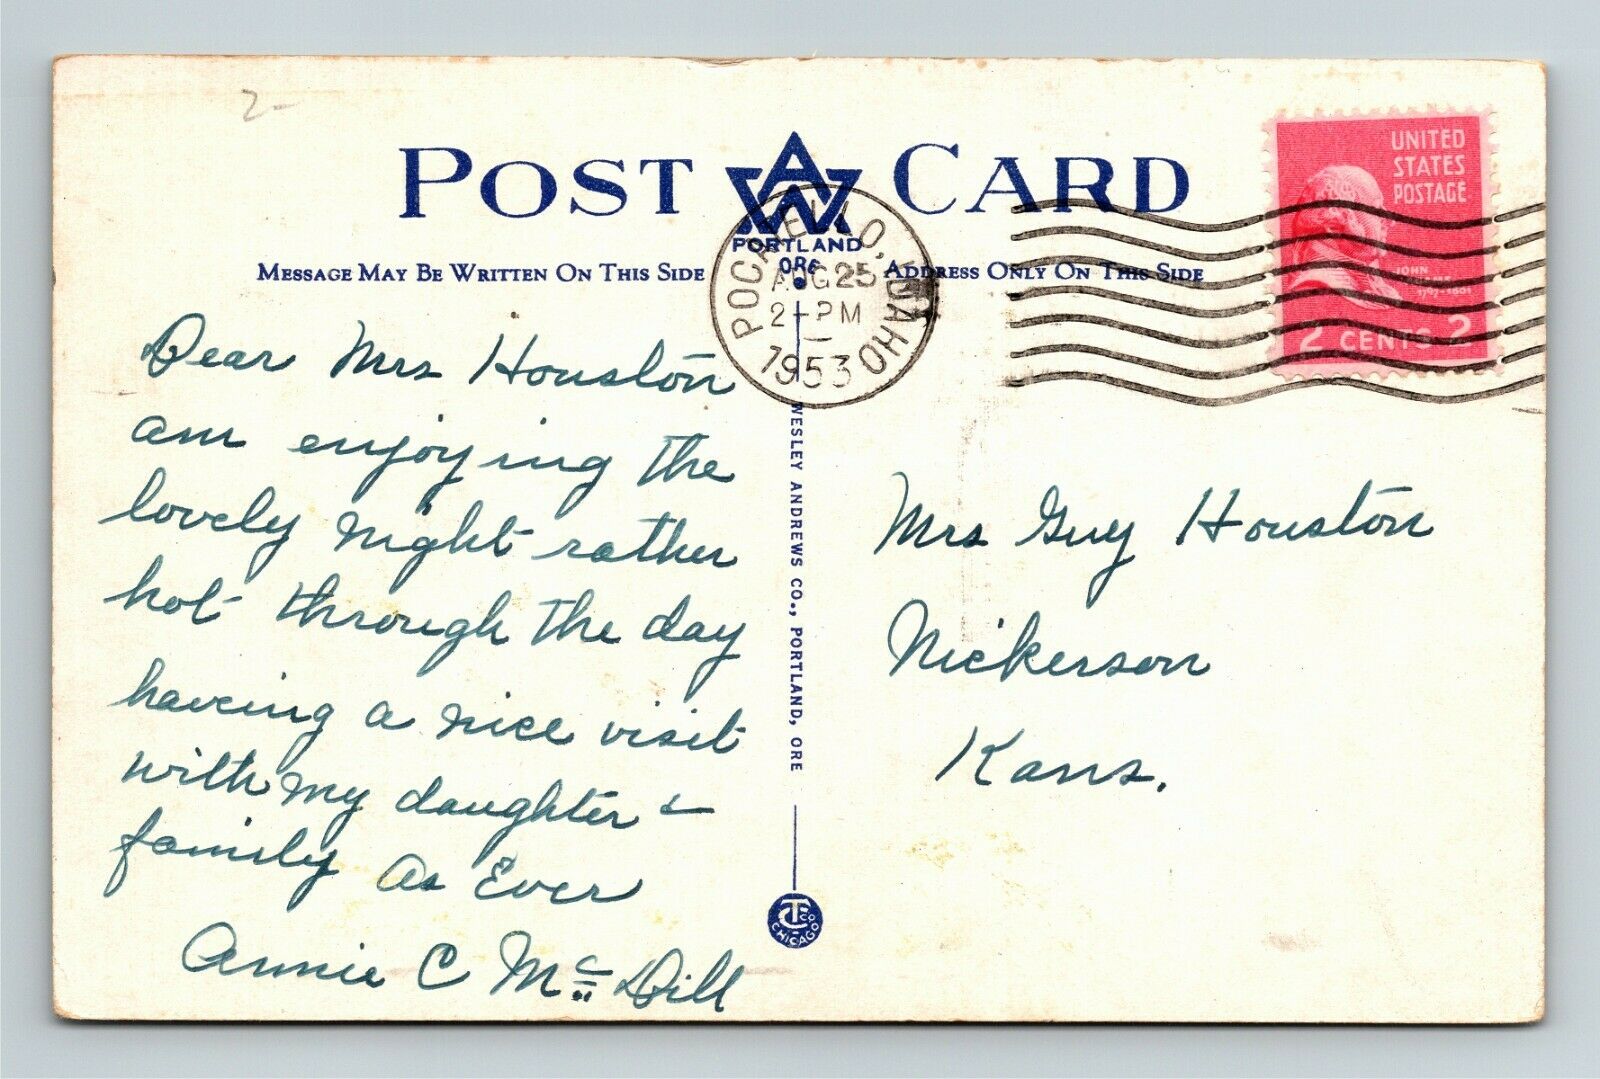 2-
POST CARD
AW
PORTLAND
ORE.
MESSAGE MAY BE WRITTEN ON THIS SIDE
ADDRESS ONLY ON THIS SIDE
POCATELLO, IDAHO
AUG 25
2-PM
1953
UNITED
STATES
POSTAGE
JOHN
ADAMS
1797-1801
2 CENTS 2
Dear Mrs Houston
am enjoying the
lovely night rather
hot through the day
haveing a nice visit
with my daughter &
family As Ever
Annie C McDill
WESLEY ANDREWS CO., PORTLAND, ORE
CTCO
CHICAGO
Mrs Guy Houston
Nickerson
Kans.